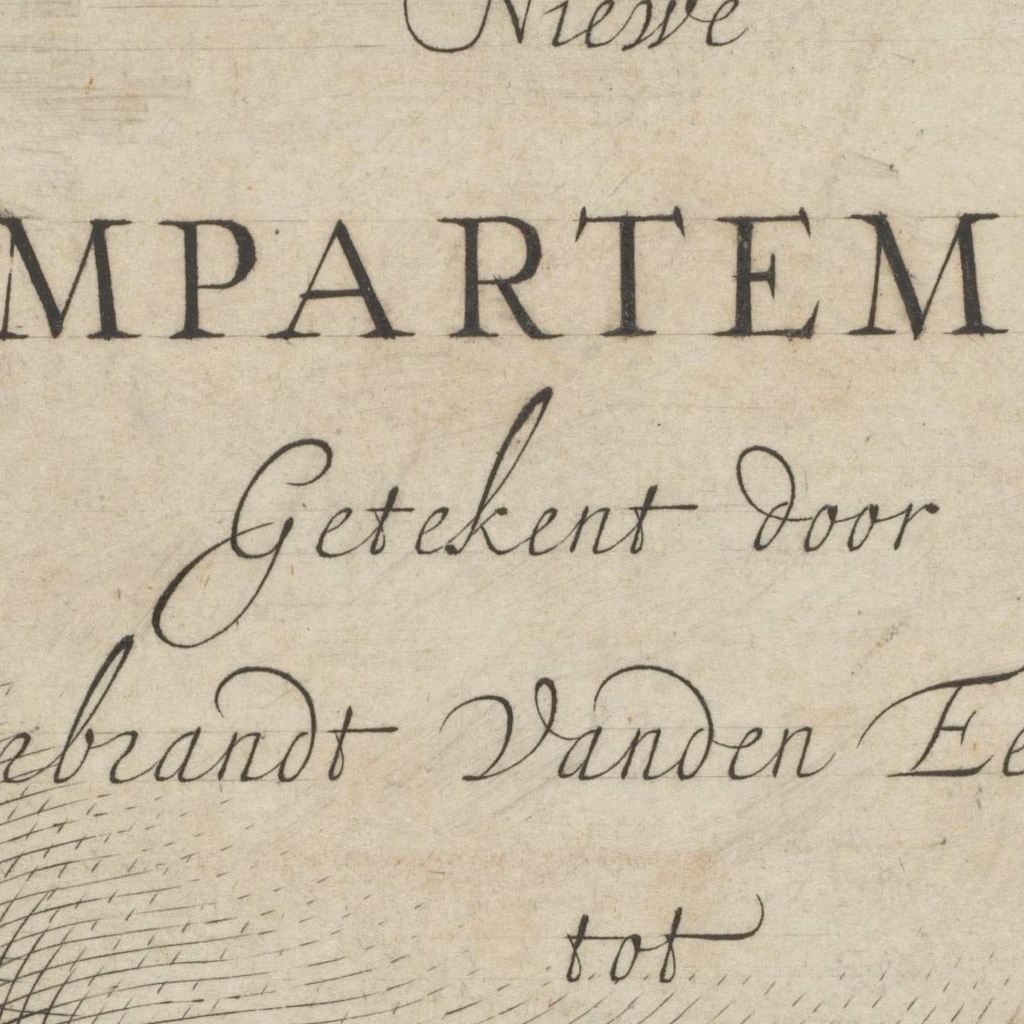 Niewe
MPARTEM
Getekent door
ebrandt Vanden Ee
tot